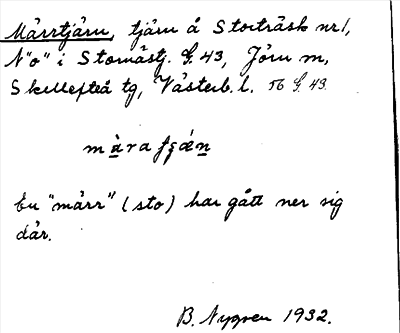 Märrtjärn, tjärn å Storträsk nr 1,
N"o" i Stornästj. G. 43, Jörn sn,
Skellefteå tg, Västerb. l. TK G. 43
màra fjǽn
En "märr" (sto) har gått ner sig
där.
B. Nygren 1932.